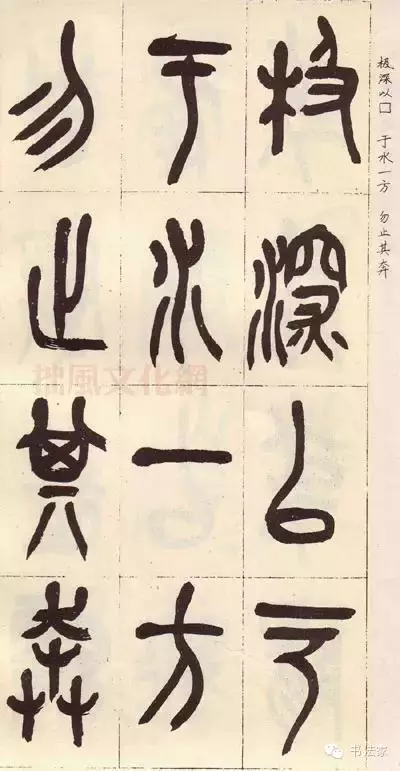 极深以□ 于水一方 勿止其奔
极深以
于水一方
勿止其奔
拙風文化網
书法家